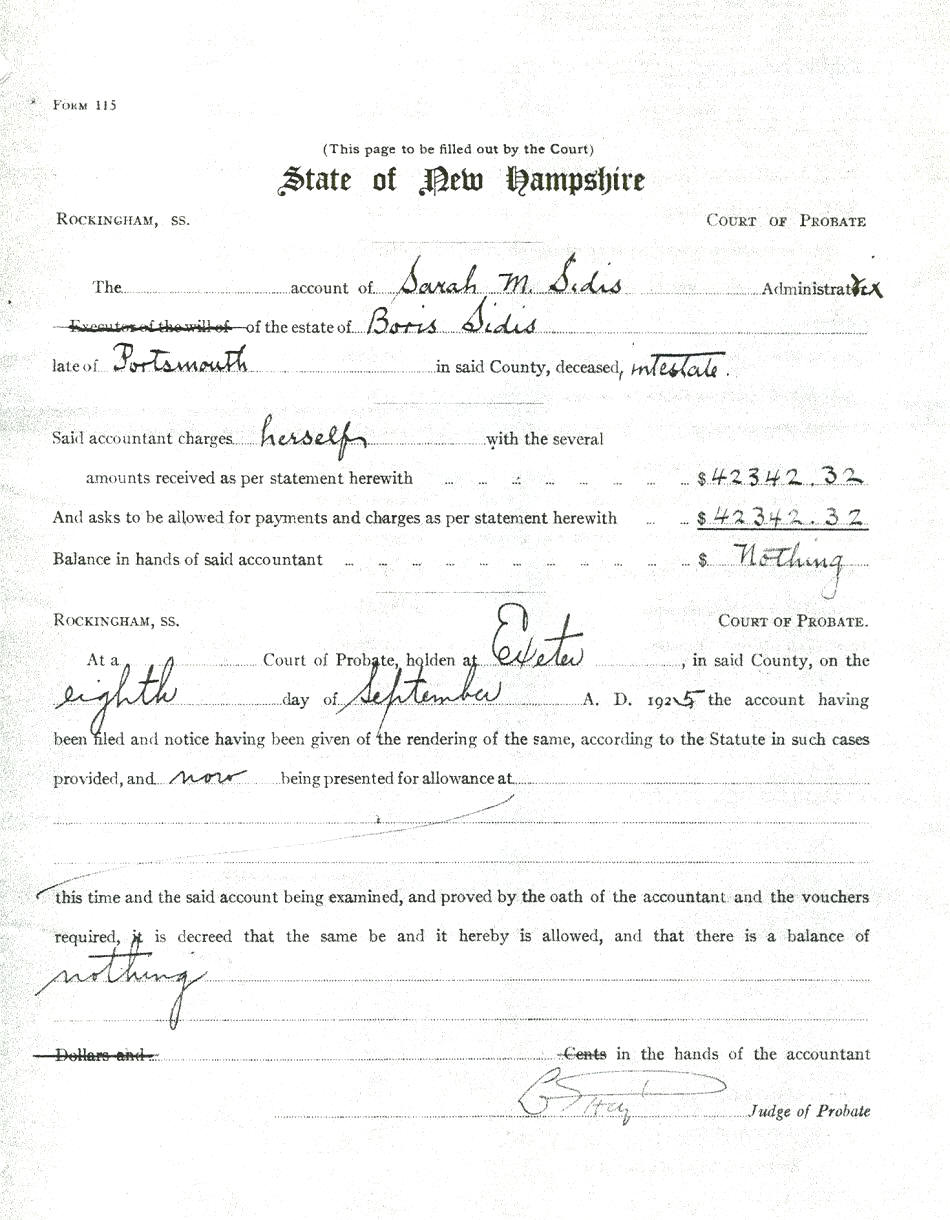 FORM 115
(This page to be filled out by the Court)
State of New Hampshire
ROCKINGHAM, SS. COURT OF PROBATE
The account of Sarah M. Sidis Administratrix
Executor of the will of of the estate of Boris Sidis
late of Portsmouth in said County, deceased, intestate.
Said accountant charges herself with the several
amounts received as per statement herewith $ 42342.32
And asks to be allowed for payments and charges as per statement herewith $ 42342.32
Balance in hands of said accountant $ Nothing
ROCKINGHAM, SS. COURT OF PROBATE.
At a Court of Probate, holden at Exeter, in said County, on the
eighth day of September A. D. 1925 the account having
been filed and notice having been given of the rendering of the same, according to the Statute in such cases
provided, and now being presented for allowance at
this time and the said account being examined, and proved by the oath of the accountant and the vouchers
required, it is decreed that the same be and it hereby is allowed, and that there is a balance of
nothing
Dollars and Cents in the hands of the accountant
Judge of Probate